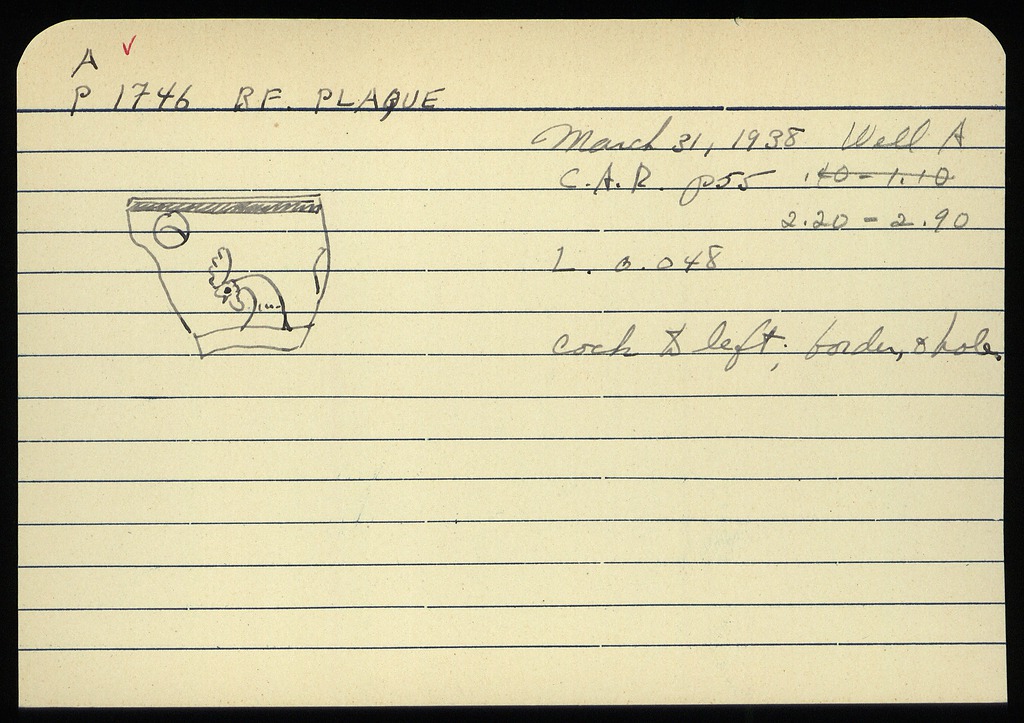 A
P 1746 RF. PLAQUE
March 31, 1938 Well A
C.A.R. p55 .40 - 1.10
2.20 - 2.90
L. 0.048
cock to left; border, & hole,